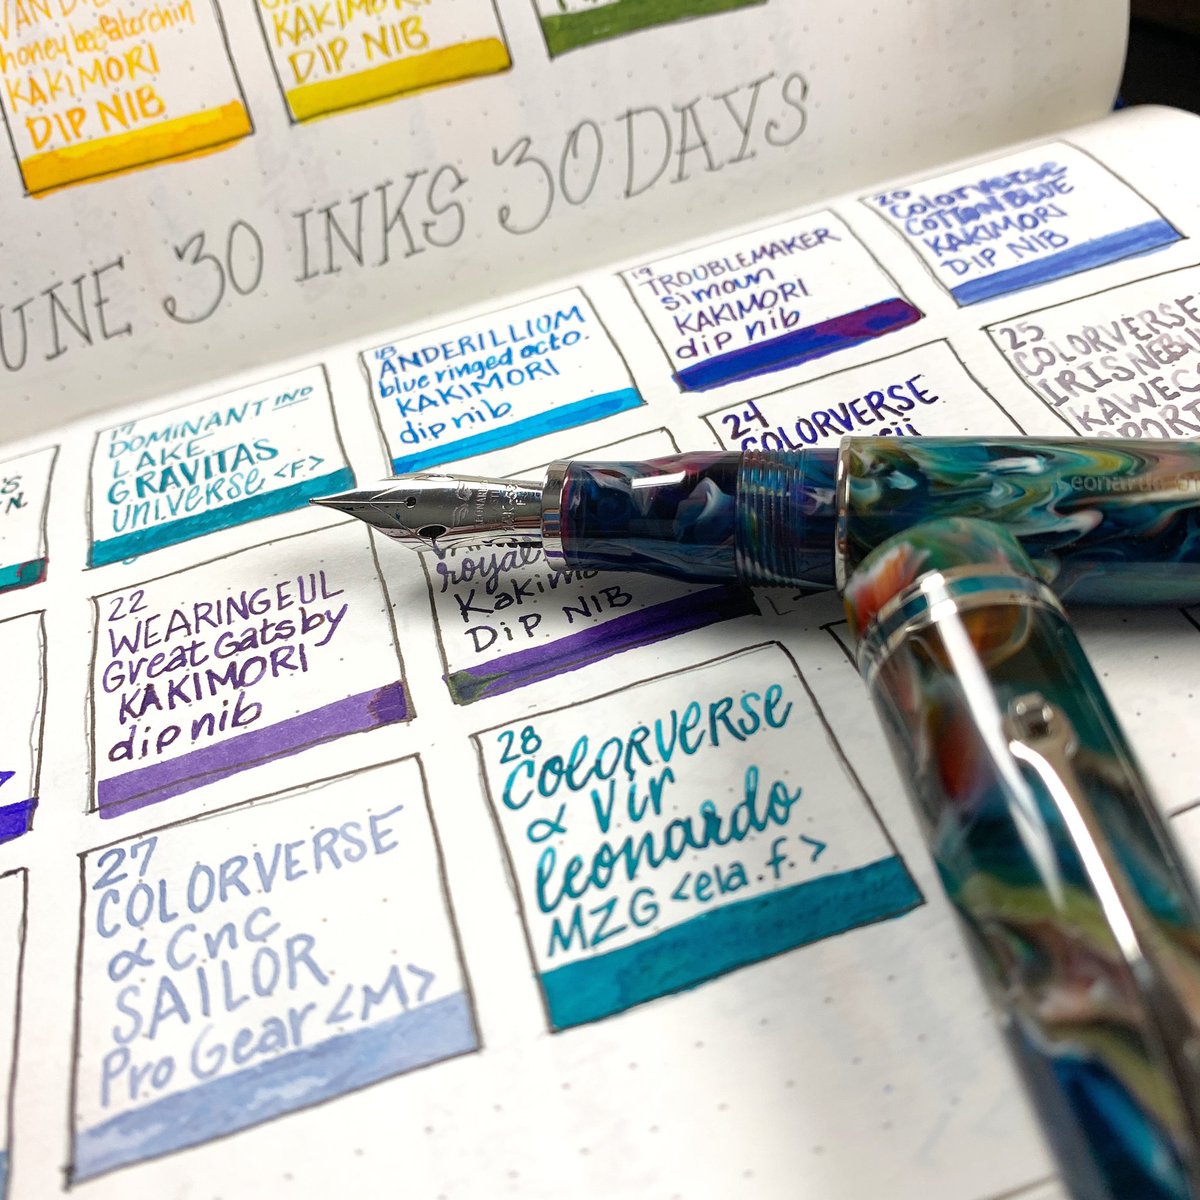 honey bee
KAKIMORI
DIP NIB
KAKIMORI
DIP NIB
UNE 30 INKS 30 DAYS
17
DOMINANT IND
LAKE
GRAVITAS
universe <F.>
18
ANDERILLIUM
blue ringed octo.
KAKIMORI
dip nib
19
TROUBLEMAKER
simoun
KAKIMORI
dip nib
20
Colorverse
COTTON BLUE
KAKIMORI
DIP NIB
22
WEARINGEUL
Great Gatsby
KAKIMORI
dip nib
royal
Kakimo
DiP NIB
24
COLORVERSE
25
COLORVERSE
KAWECO
27
COLORVERSE
α Cnc
SAILOR
Pro Gear <M>
28
COLORVERSE
α Vir
leonardo
MZG <ela.f.>
Leonardo